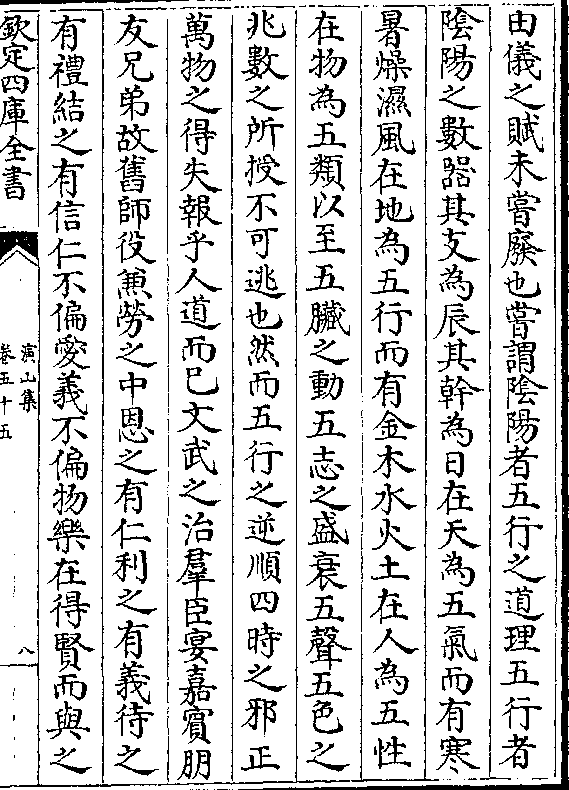 由儀之賦未嘗廢也嘗謂陰陽者五行之道理五行者
陰陽之數器其支為辰其幹為日在天為五氣而有寒
暑燥濕風在地為五行而有金木水火土在人為五性
在物為五類以至五臟之動五志之盛衰五聲五色之
兆數之所授不可逃也然而五行之逆順四時之邪正
萬物之得失報乎人道而已文武之治羣臣宴嘉賓朋
友兄弟故舊師役兼勞之中恩之有仁利之有義待之
有禮結之有信仁不偏愛義不偏物樂在得賢而與之
欽定四庫全書
演山集
卷五十五
八